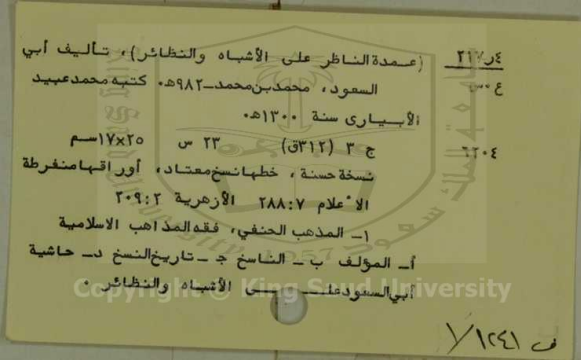 ٢١٧٫٤ (عمدة الناظر على الأشباه والنظائر)، تأليف أبي
ع ٠ س السعود، محمد بن محمد ــ ٩٨٢هـ٠ كتبه محمد عبيد
الأبيارى سنة ١٣٠٠هـ٠
٦٢٠٤ ج ٣ (٣١٢ق) ٢٣ س ٢٥×١٧سم
نسخة حسنة، خطها نسخ معتاد، أوراقها منفرطة
الاعلام ٧: ٢٨٨ الأزهرية ٢: ٢٠٩
١ـ المذهب الحنفي، فقه المذاهب الاسلامية
أـ المؤلف ب ـ الناسخ جـ ـ تاريخ النسخ د ـ حاشية
أبي السعود على الأشباه والنظائر ٠
Copyright © King Saud University
ف ١٢٤١/١